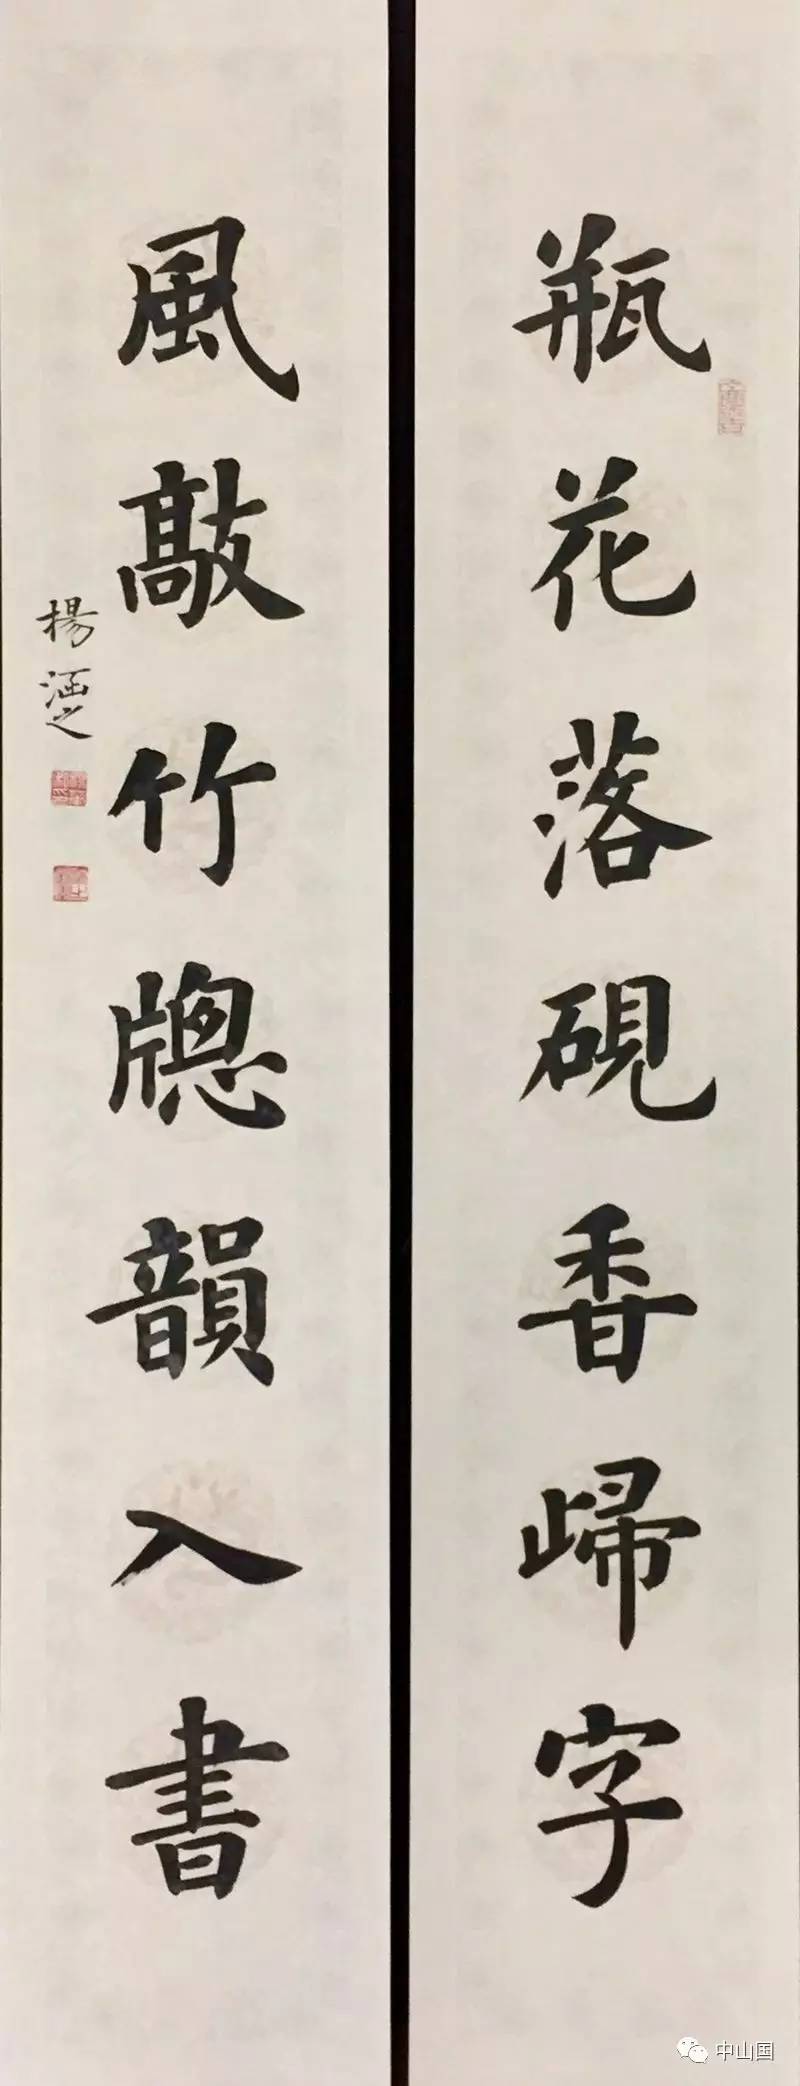 瓶花落硯香歸字
風敲竹牕韻入書
楊涵之
中山国